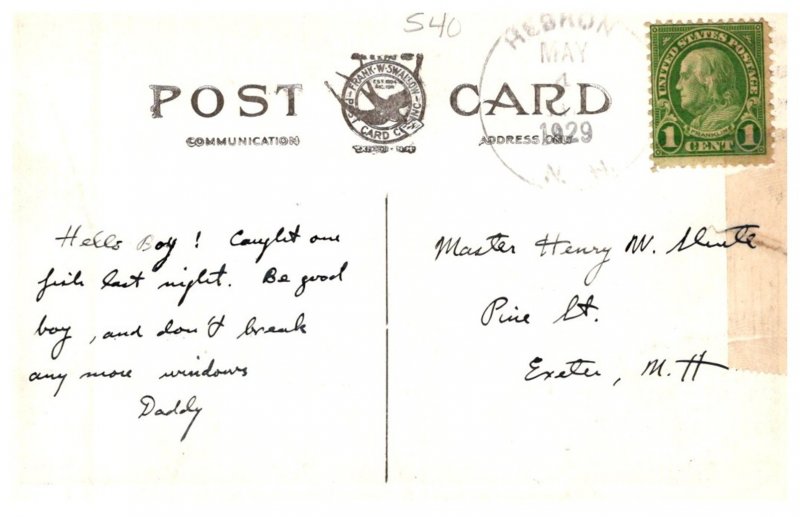 540
HEBRON
MAY
4
1929
N.H.
UNITED STATES POSTAGE
FRANKLIN
1 CENT 1
POST CARD
FRANK W. SWALLOW
POST CARD CO. INC.
COMMUNICATION
ADDRESS ONLY
Hello Boy! Caught one
fish last night. Be good
boy, and don't break
any more windows
Daddy
Master Henry W. Shute
Pine St.
Exeter, N.H